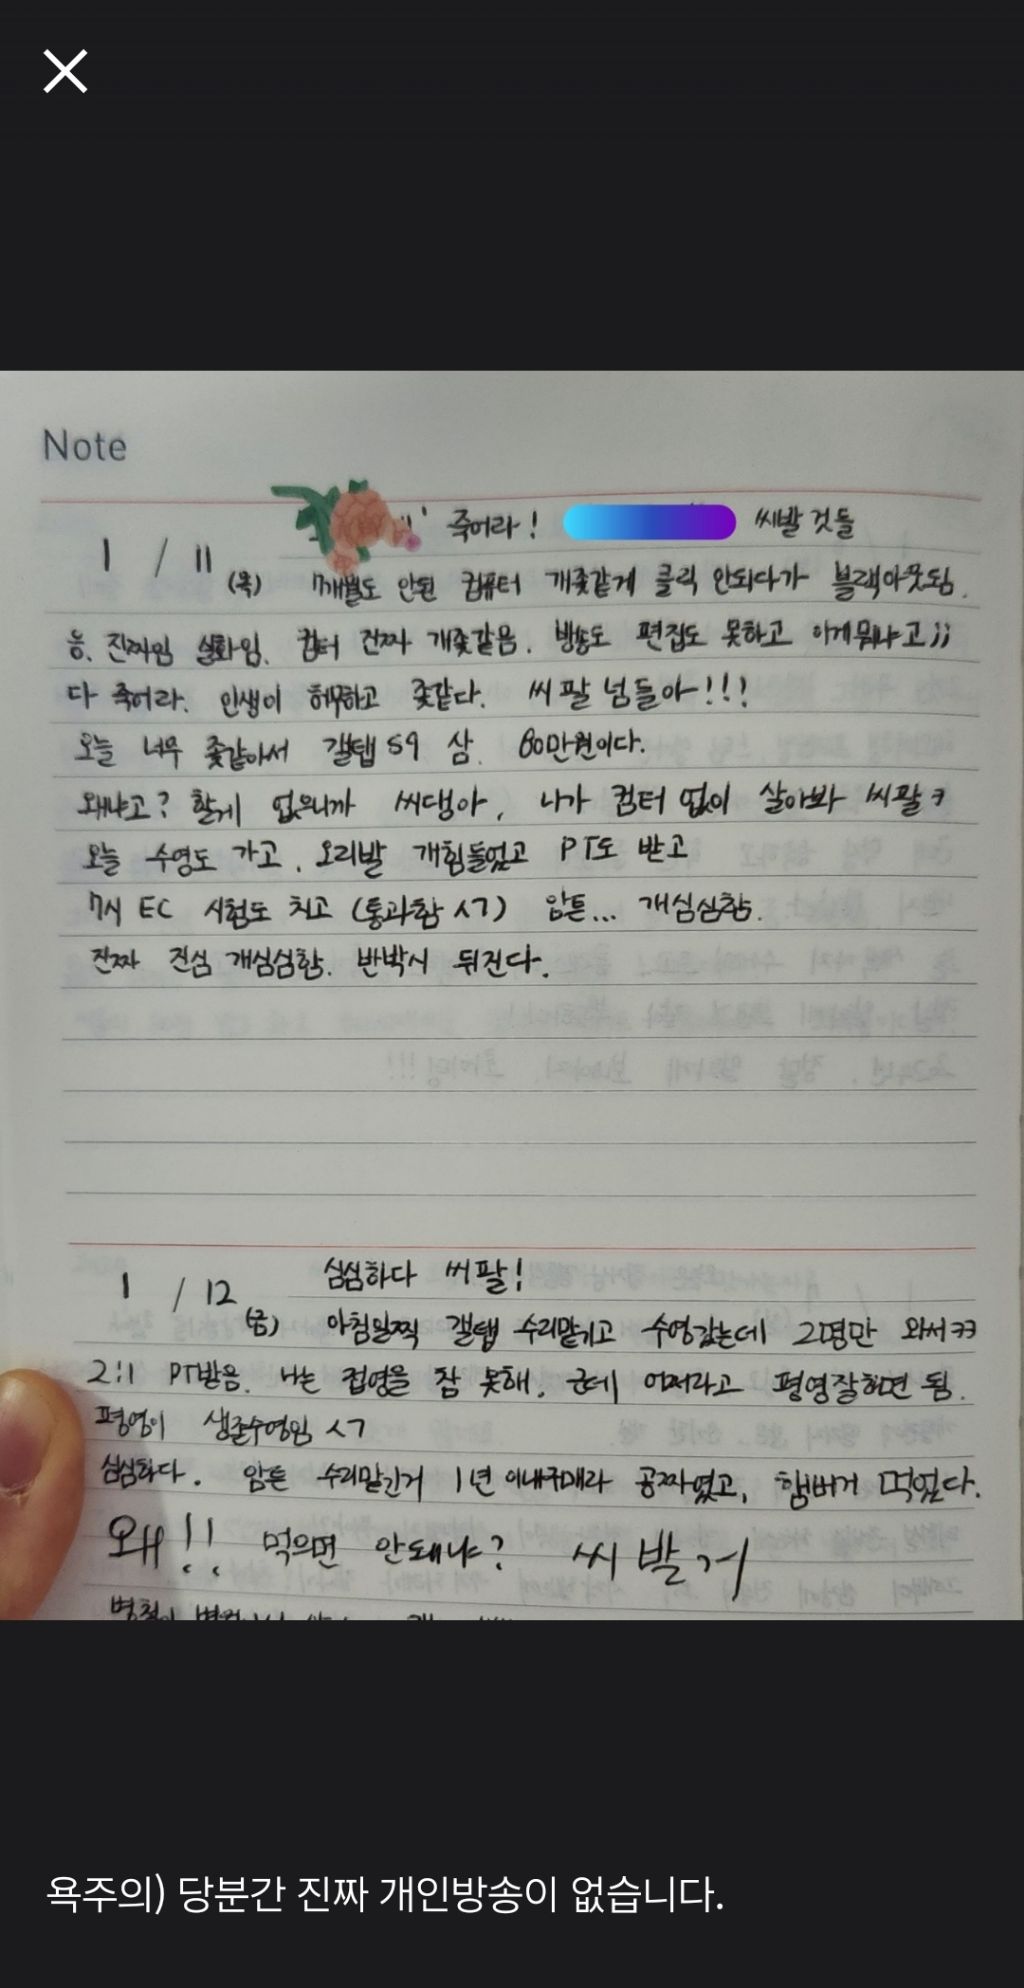 Note
죽어라! 씨발 것들
1 / 11 (목) 7개월도 안된 컴퓨터 개좆같게 클릭 안되다가 블랙아웃됨.
응. 진짜임 실화임. 컴터 진짜 개좆같음. 방송도 편집도 못하고 이게뭐냐고;;
다 죽어라. 인생이 허무하고 좆같다. 씨팔넘들아!!!
오늘 너무 좆같아서 갤탭 S9 삼. 80만원이다.
왜냐고? 할게 없으니까 씨댕아, 니가 컴터 없이 살아봐 씨팔ㅋ
오늘 수영도 가고, 오리발 개힘들었고 PT도 받고
7시 EC 시험도 치고 (통과함 ㅅㄱ) 암튼... 개심심함.
진짜 진심 개심심함. 반박시 뒤진다.
심심하다 씨팔!
1 / 12 (금) 아침일찍 갤탭 수리맡기고 수영갔는데 2명만 와서ㅋㅋ
2:1 PT받음. 나는 접영을 참 못해. 근데 어쩌라고 평영잘하면 됨.
평영이 생존수영임 ㅅㄱ
심심하다. 암튼 수리맡긴거 1년 이내구매라 공짜였고, 햄버거 먹었다.
왜!! 먹으면 안돼냐? 씨발거
욕주의) 당분간 진짜 개인방송이 없습니다.